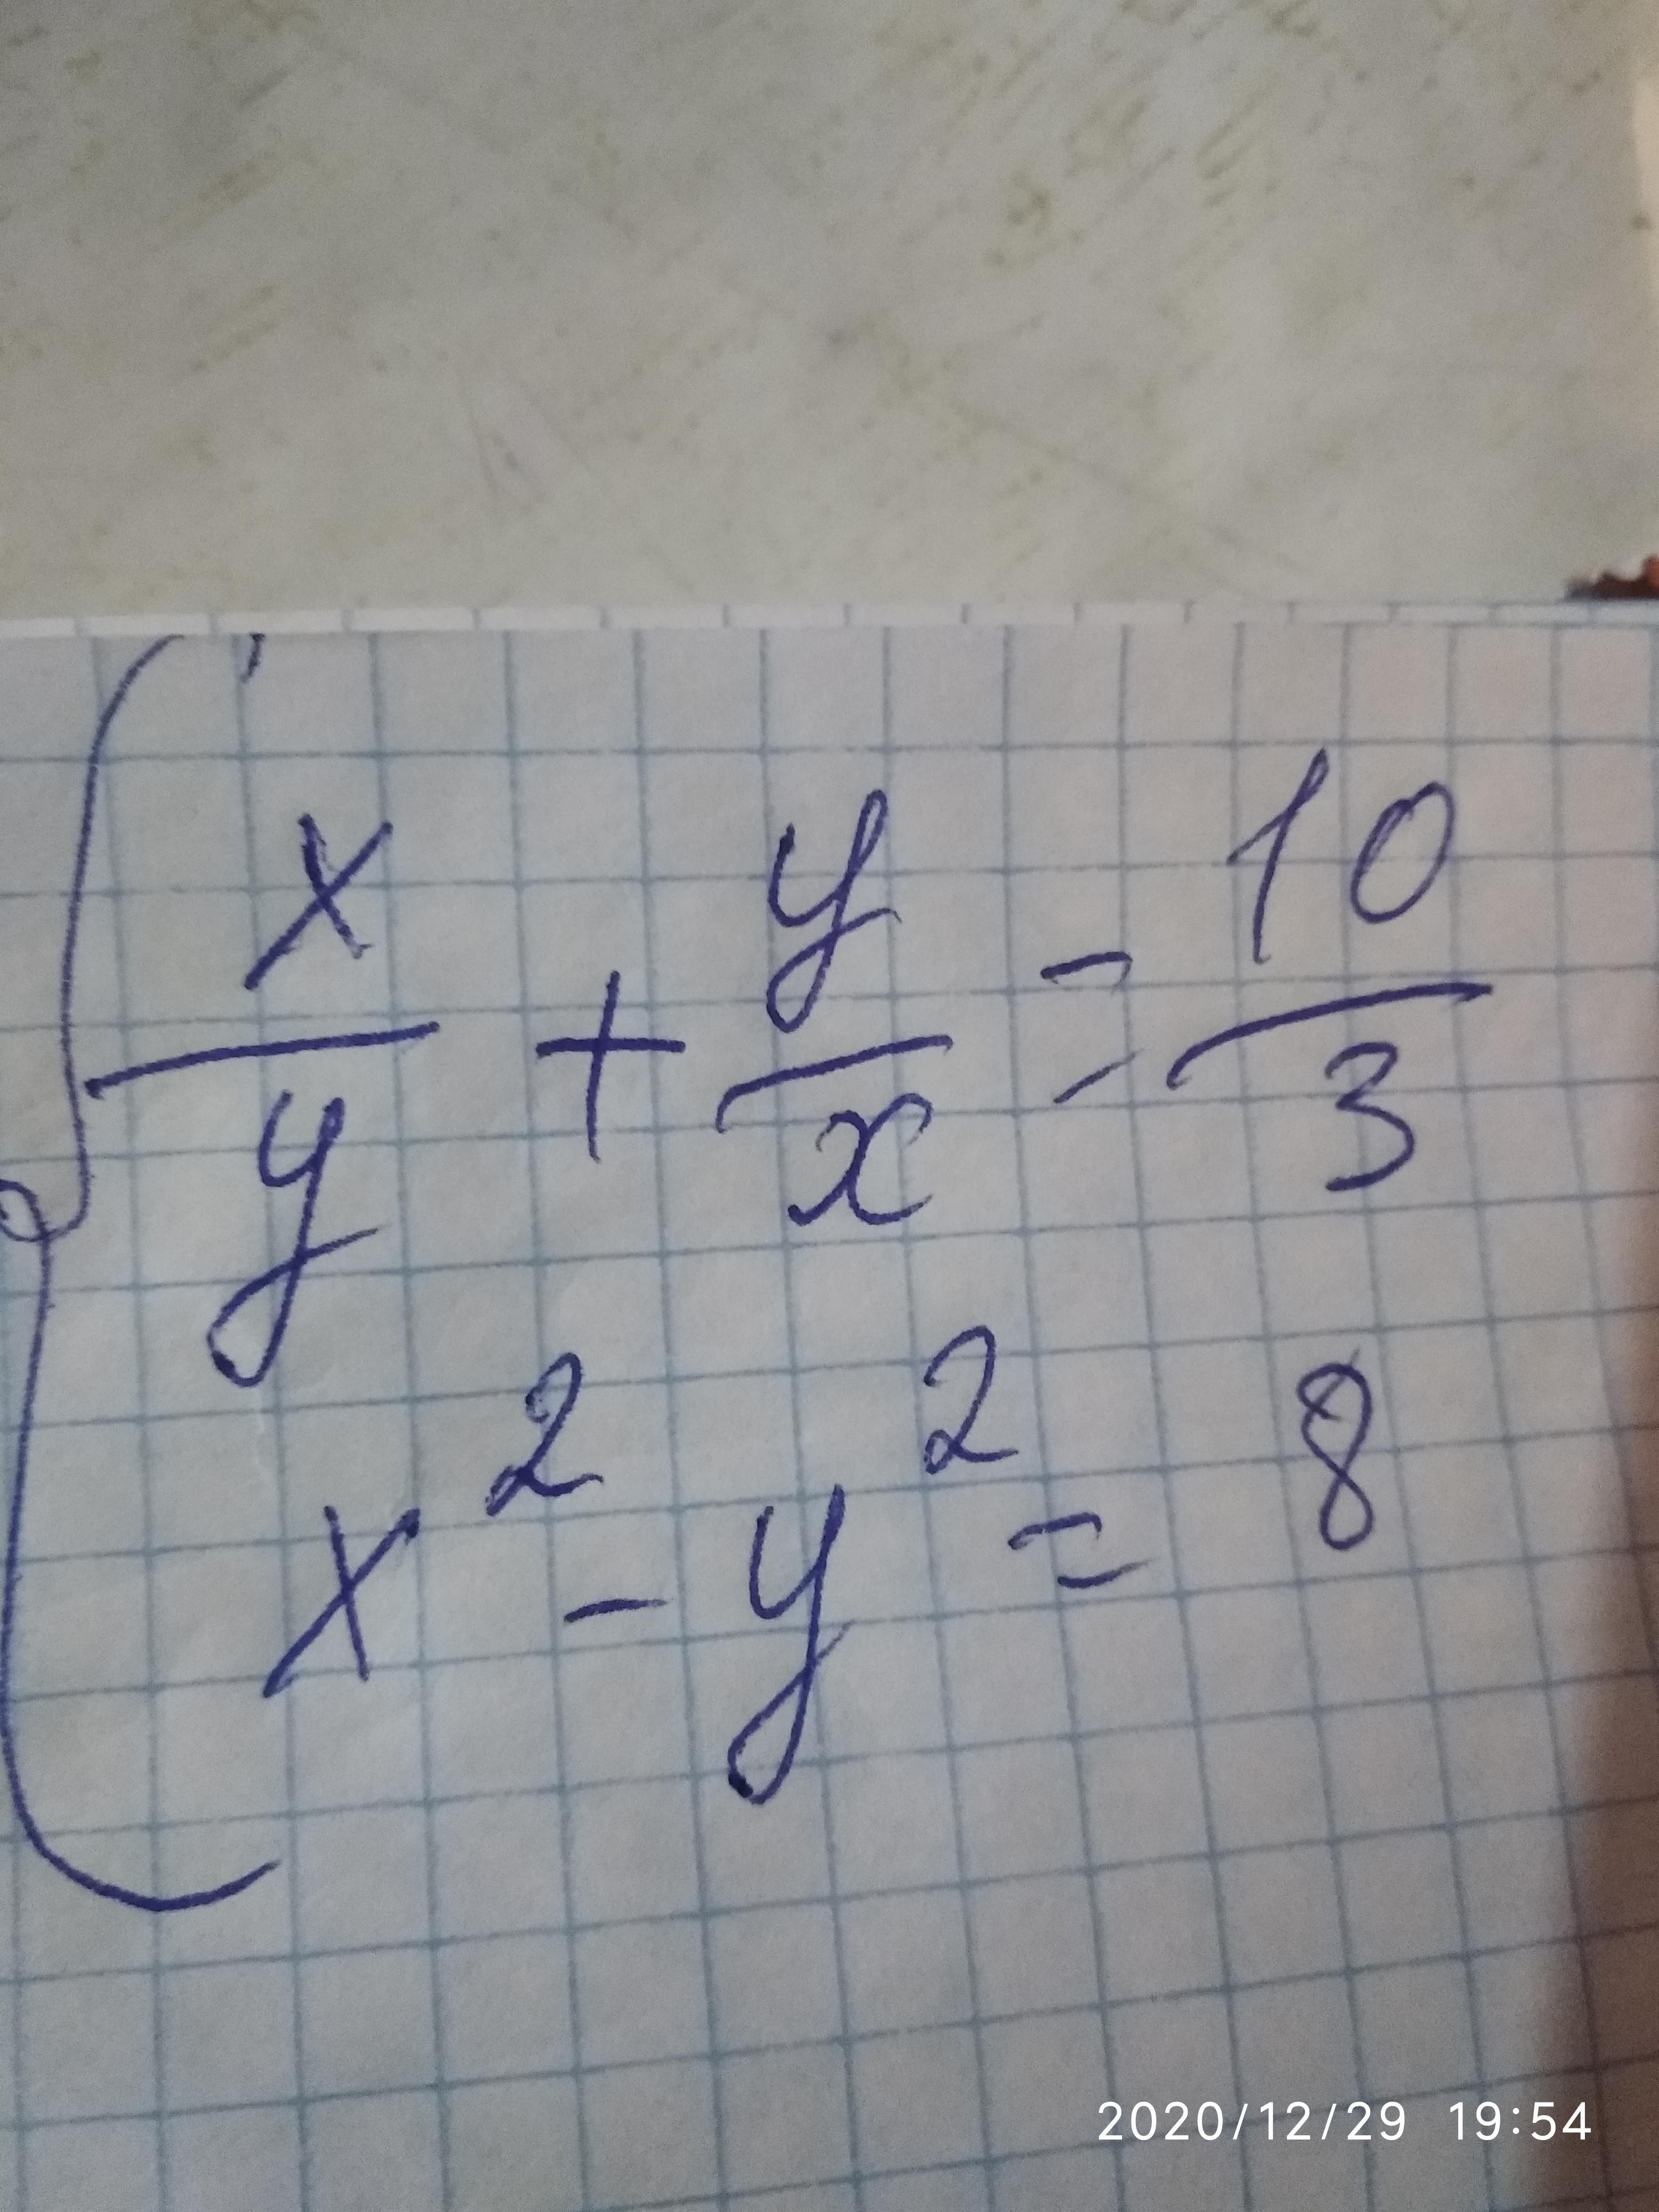 x/y + y/x = 10/3
x² - y² = 8
2020/12/29 19:54